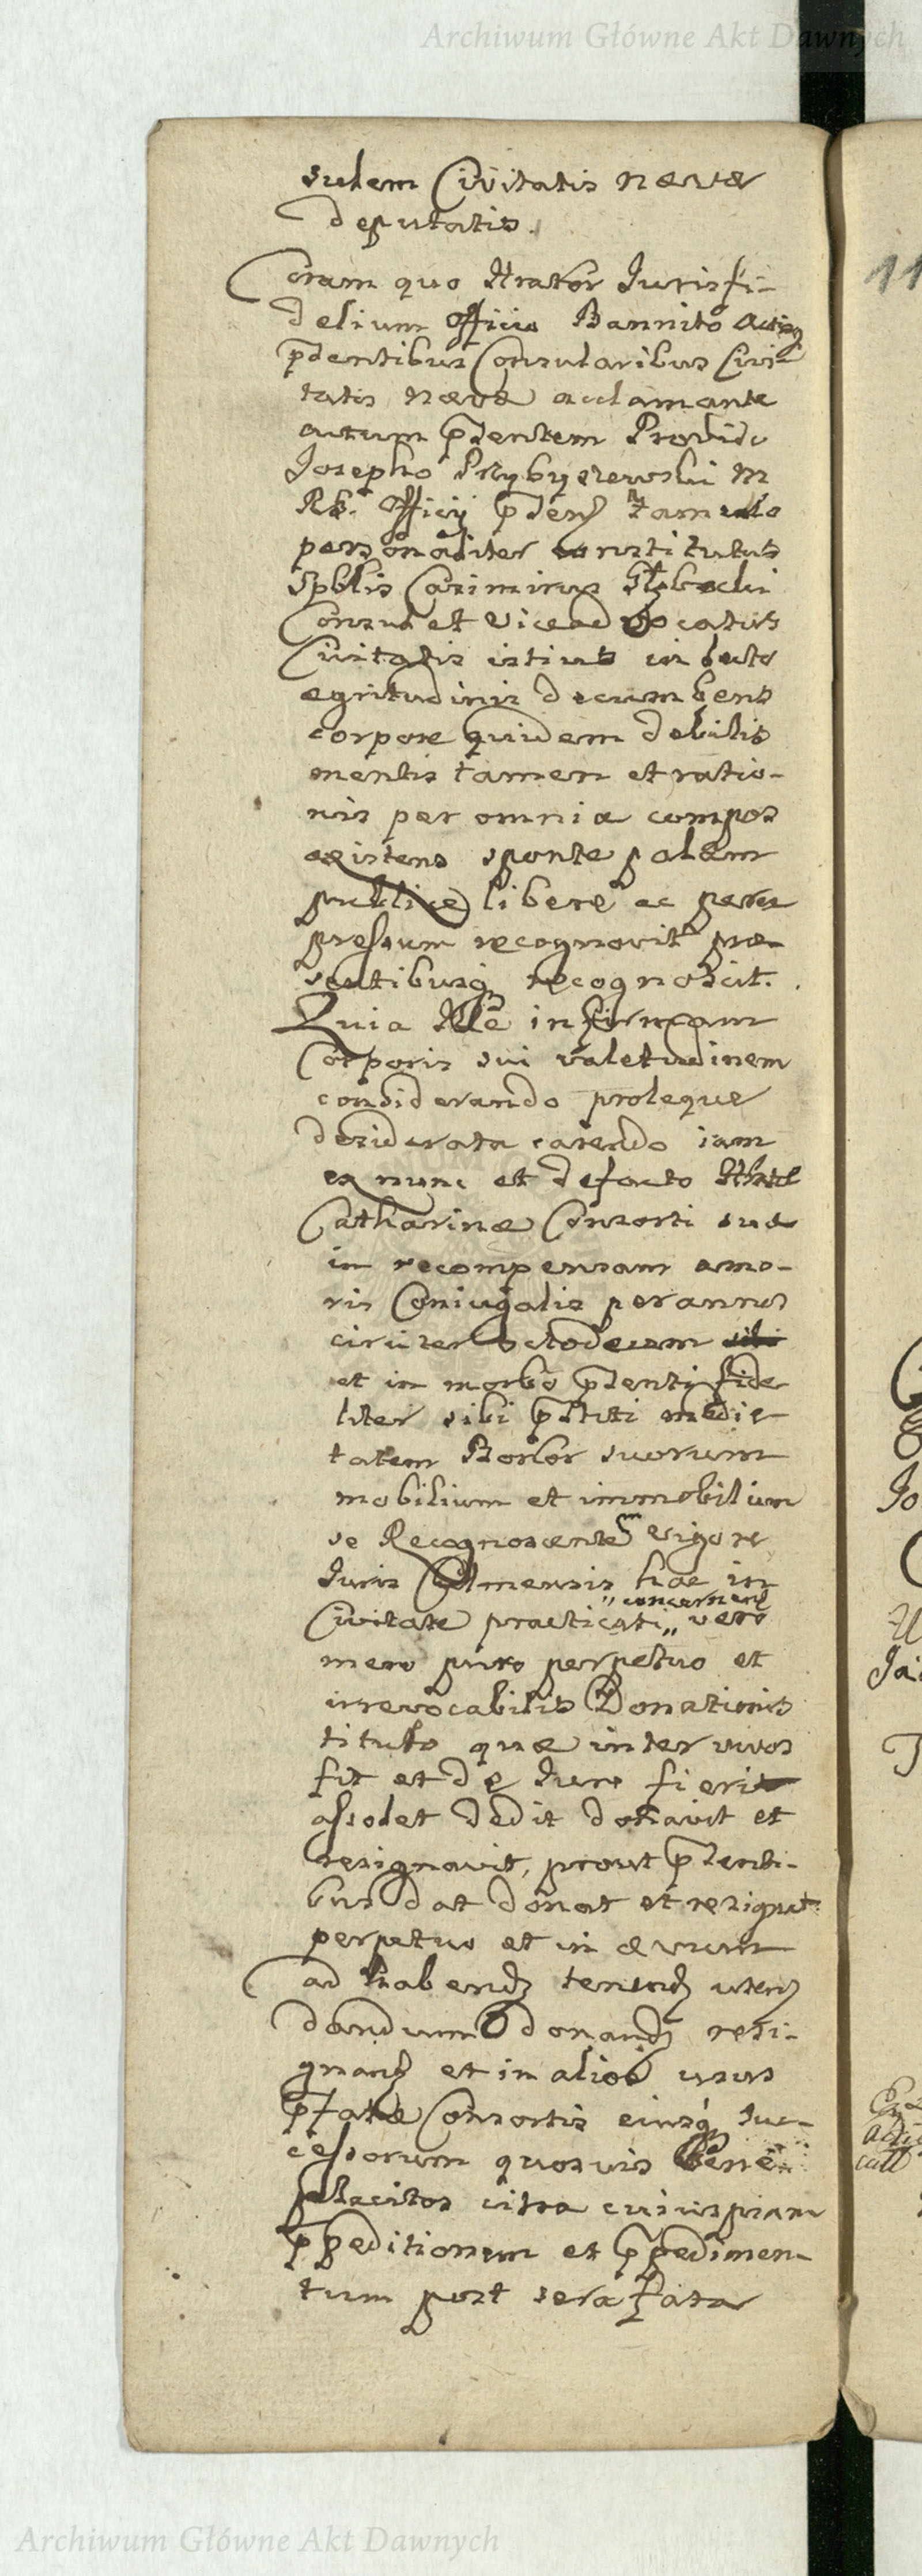 Archiwum Główne Akt Dawnych
sulem Civitatis Novæ
deputatis.
Coram quo Officio
delium Officio Bannito Actisq
pdentibus Consularibus Civi-
tatis novæ acclamante
actum pntentem Provido
Josepho Przybyszewski M
Officij pnten
personaliter constitutus
Spblis Casimirus
Consul et viceadvocatus
Civitatis istius in lecto
ægritudinis decumbens
corpore quidem debilis
mentis tamen et ratio-
nis per omnia compos
existens sponte palam
publice libere ac per ex
pressum recognovit præ-
sentibusq recognoscit.
Quia Ille infirmam
Corporis sui valetudinem
considerando proleque
desiderata carendo iam
ex nunc et defacto
Catharinæ Consorti suæ
in recompensam amo-
ris Coniugalis per annos
circiter octodecem
et in morbo pntenti fide
liter sibi pstiti medie
tatem Bonor suorum
mobilium et immobilium
se Recognoscente vigore
Juris Culmensis hac in
" concernen
Civitate practicati " vero
mero puro perpetuo et
irrevocabilis Donationis
titulo quæ inter vivos
fit et de Jure fieri
assolet dedit donavit et
resignavit, prout pnsenti-
bus dat donat et resignat
perpetuo et in ævum
ad habend tenend utend
dandum donand resi-
gnand et in alios usus
pfatæ Consortis eiusq suc-
cessorum quosvis Bene
placitos citra cuiuspiam
ppeditionem et ppedimen-
tum post sera fata
Archiwum Główne Akt Dawnych